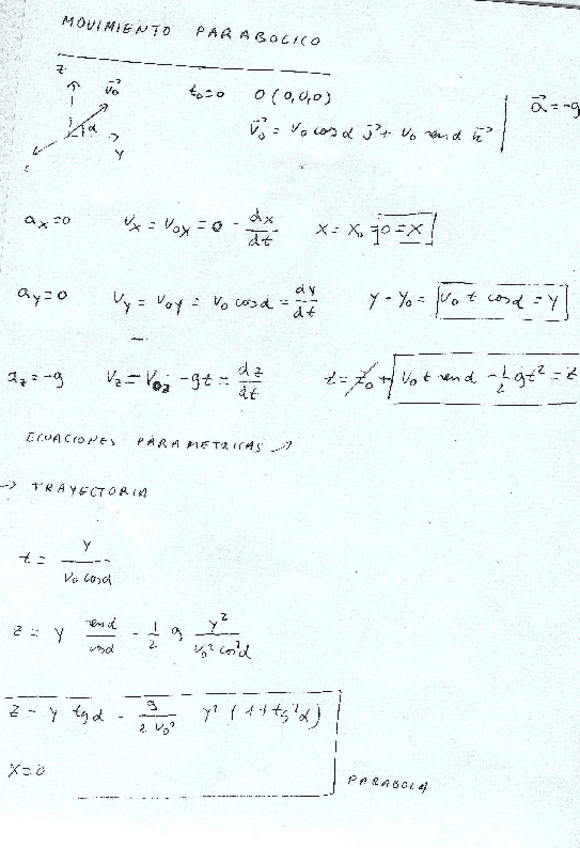 MOVIMIENTO PARABOLICO
z v₀→ t₀=0 O(0,0,0)
α y v₀→ = v₀ cosα j→ + v₀ senα k→ | a→ = -g
aₓ=0 vₓ = v₀ₓ = 0 - dx/dt x = x₀ = 0 = x
a_y=0 v_y = v₀y = v₀ cosα = dy/dt y - y₀ = v₀ t cosα = y
a_z=-g v_z = v₀z - gt = dz/dt z = z₀ + v₀ t senα - 1/2 gt² = z
ECUACIONES PARAMETRICAS ↗
→ TRAYECTORIA
t = y / v₀ cosα
z = y senα/cosα - 1/2 g y²/v₀² cos²α
z = y tgα - g/2v₀² y² (1+tg²α)
x=0
PARABOLA